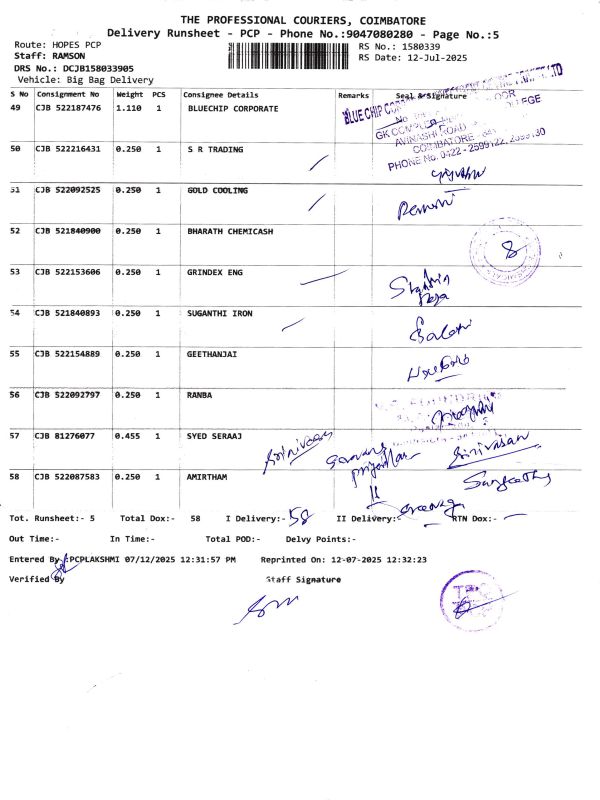 THE PROFESSIONAL COURIERS, COIMBATORE
Delivery Runsheet - PCP - Phone No.:9047080280 - Page No.:5
Route: HOPES PCP
RS No.: 1580339
Staff: RAMSON
RS Date: 12-Jul-2025
DRS No.: DCJB158033905
Vehicle: Big Bag Delivery
S No Consignment No Weight PCS Consignee Details Remarks Seal & Signature
49 CJB 522187476 1.110 1 BLUECHIP CORPORATE
BLUE CHIP
GK COMPLEX
AVINASHI ROAD
COIMBATORE
PHONE No. 0422 -
50 CJB 522216431 0.250 1 S R TRADING
51 CJB 522092525 0.250 1 GOLD COOLING
52 CJB 521840900 0.250 1 BHARATH CHEMICASH
53 CJB 522153606 0.250 1 GRINDEX ENG
54 CJB 521840893 0.250 1 SUGANTHI IRON
55 CJB 522154889 0.250 1 GEETHANJAI
56 CJB 522092797 0.250 1 RANBA
57 CJB 81276077 0.455 1 SYED SERAAJ
Srinivasan
58 CJB 522087583 0.250 1 AMIRTHAM
Sangeetha
Tot. Runsheet:- 5 Total Dox:- 58 I Delivery:- 58 II Delivery:- RTN Dox:-
Out Time:- In Time:- Total POD:- Delvy Points:-
Entered By :PCPLAKSHMI 07/12/2025 12:31:57 PM Reprinted On: 12-07-2025 12:32:23
Verified By Staff Signature